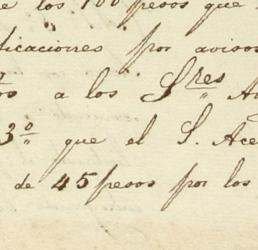 los 100 pesos que
dicaciones por avisos
os a los S.res
3.º que el S. Ace
de 45 pesos por los